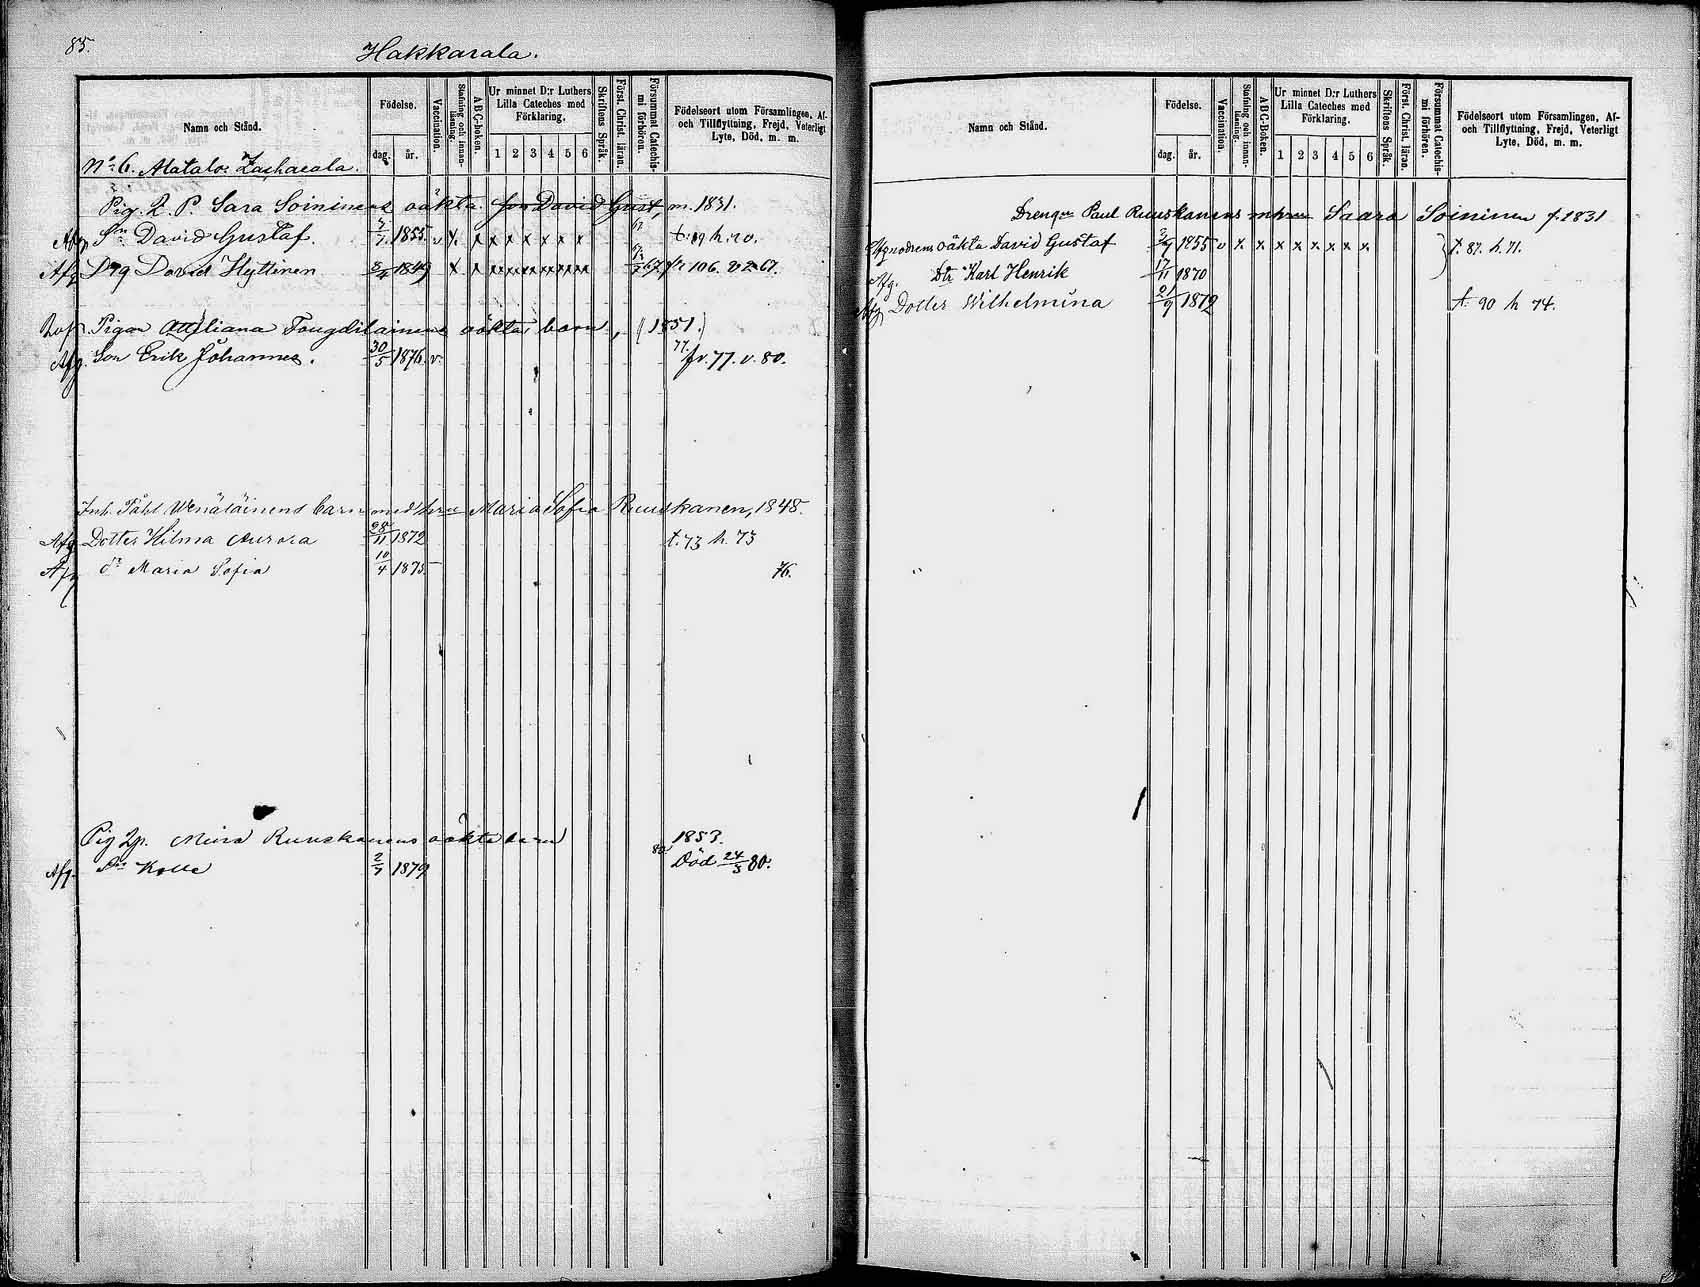 85.
Hakkarala.
Namn och Stånd.
Födelse.
dag. år.
Vaccination.
Stafning och innanläsning.
ABC-boken.
Ur minnet D:r Luthers Lilla Cateches med Förklaring.
1 2 3 4 5 6
Skriftens Språk.
Först. Christ. läran.
Försummat Catechismi förhören.
Födelseort utom Församlingen, Af- och Tillflyttning, Frejd, Veterligt Lyte, Död, m. m.
No 6. Alatalo
Pig. L. P. Sara Soininens oäkta son David Gust, m. 1831.
Afg Sn David Gustaf. 1855 v x x x x x x x x
Afg Drg David Hyttinen 1849 x x 106. 67.
Pigan oäkta barn, (1851.)
Afg. Son Erik Johannes. 30/5 1876 v 77. fr. 77. v. 80.
Inh. Påhl Wenäläinens barn med hru Maria Sofia Ruuskanen, 1848.
Afg Dotter Hilma Aurora 28/11 1872 t. 73 h. 73
Afg Dr Maria Sofia 10/4 1875 76.
Pig Lp. Ruuskanens oäkta barn 1853.
Afg. 2/7 1879 80. Död 24/3 80.
Namn och Stånd.
Födelse.
dag. år.
Vaccination.
Stafning och innanläsning.
ABC-Boken.
Ur minnet D:r Luthers Lilla Cateches med Förklaring.
1 2 3 4 5 6
Skriftens Språk.
Först. Christ. läran.
Försummat Catechismi förhören.
Födelseort utom Församlingen, Af- och Tillflyttning, Frejd, Veterligt Lyte, Död, m. m.
Drengen Paul Ruuskanens m hru Saara Soininen f. 1831
Afg modrens oäkta David Gustaf 1855 v x x x x x x x x t. 87. h. 71.
Afg. Karl Henrik 17/11 1870
Afg Dotter Wilhelmina 1872 t. 90 h 74.